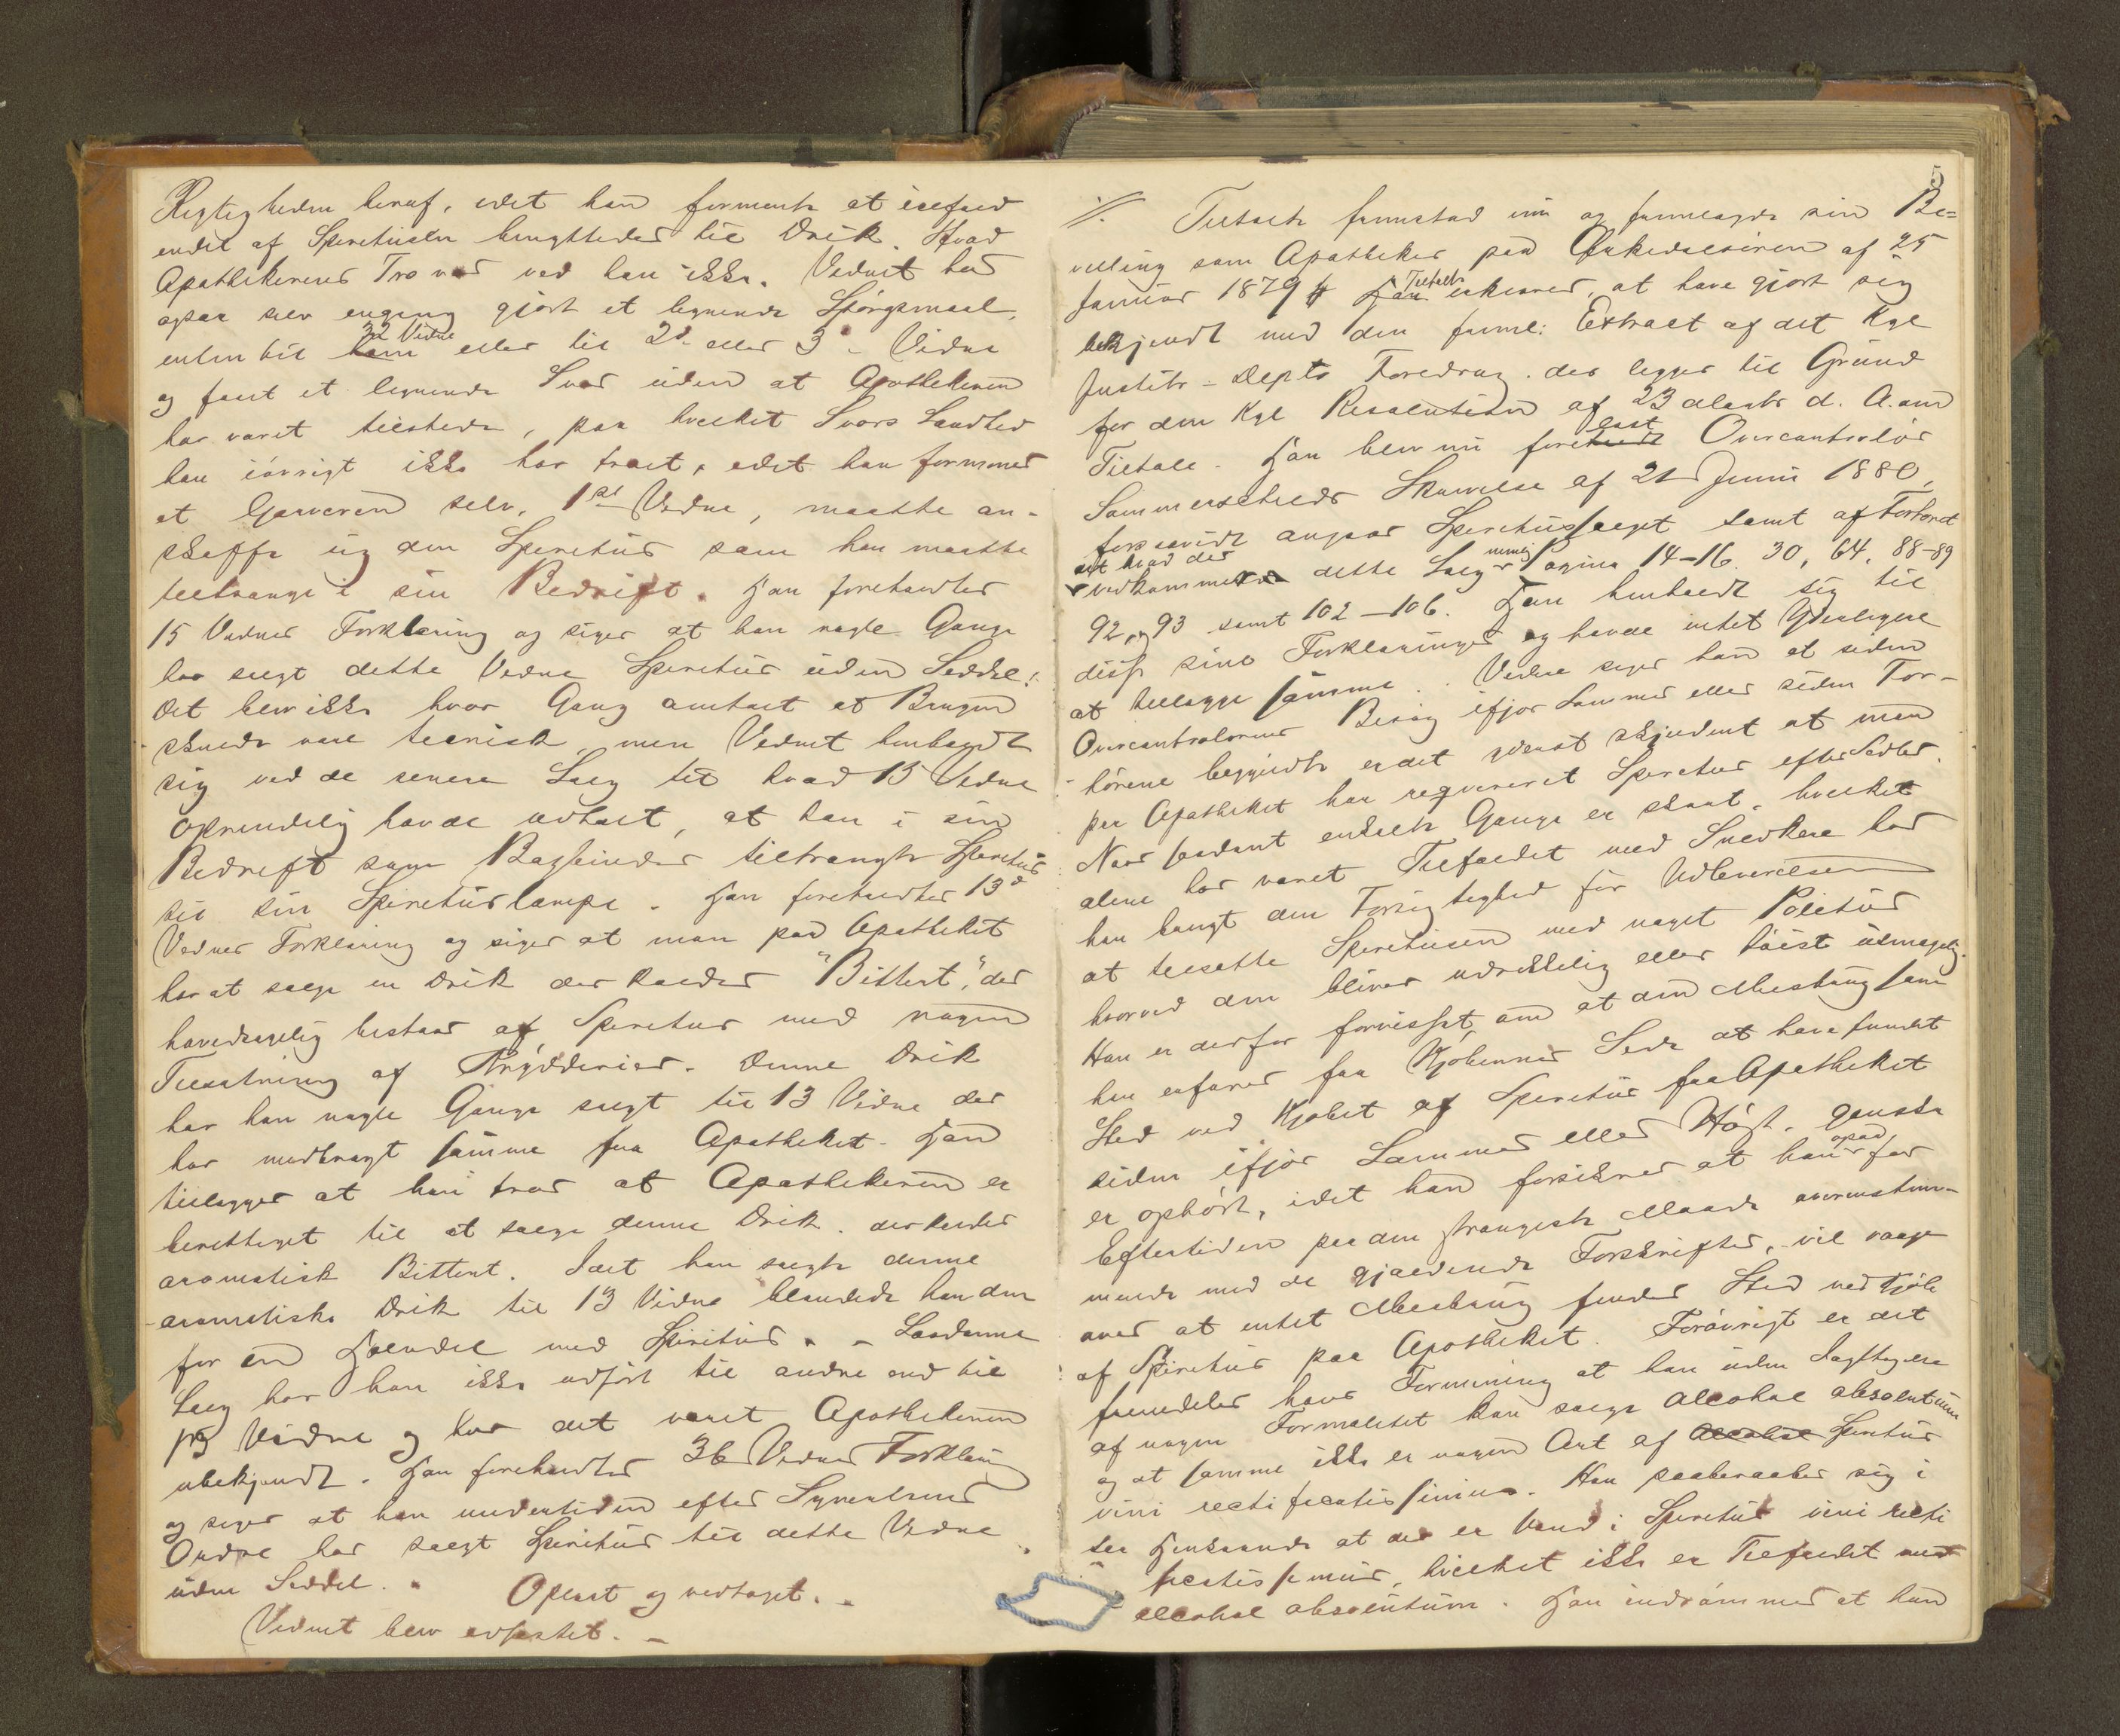 Rigtigheden heraf, idet han formente at ialfald
endel af Spiritusen benyttedes til Drik. Hvad
Apothekerens Tro var ved han ikke. Vidnet har
ogsaa selv engang gjort et lignende Spørgsmaal,
enten til 32 Vidne eller til 2d eller 3d Vidne
og faaet et lignende Svar uden at Apothekeren
har været tilstede, paa hvilket Svars Sandhed
han iøvrigt ikke har troet, idet han formener
at Garveren selv, 1ste Vidne, maatte an-
skaffe sig den Spiritus som han maatte
tiltrænge i sin Bedrift. Han foreholdtes
15 Vidnes Forklaring og siger at han nogle Gange
har solgt dette Vidne Spiritus uden Seddel.
Det blev ikke hver Gang omtalt at Brugen
skulde være teknisk, men Vidnet henholdt
sig ved de senere Salg til hvad 15 Vidne
oprindelig havde udtalt, at han i sin
Bedrift som Bogbinder tiltrængte Spiritus
til sin Spirituslampe. Han foreholdtes 13d
Vidnes Forklaring og siger at man paa Apotheket
har at sælge en Drik der kaldes "Bittert", der
hovedsagelig bestaar af Spiritus med nogen
Tilsætning af Krydderier. Denne Drik
har han nogle Gange solgt til 13 Vidne der
har medbragt samme fra Apotheket. Han
tillægger at han tror at Apothekeren er
berettiget til at sælge denne Drik, der kaldes
aromatisk Bittert. Idet han solgte denne
aromatiske Drik til 13 Vidne blandede han den
for en Halvdel med Spiritus. - Saadanne
Salg har han ikke udført til andre end til
13 Vidne og har det været Apothekeren
ubekjendt. Han foreholdtes 36 Vidnes Forklaring
og siger at han undertiden efter
Ordre har solgt Spiritus til dette Vidne
uden Seddel. Oplæst og vedtaget. -
Vidnet blev edfæstet. -
5
Tiltalte fremstod nu og fremlagde sin Be=
villing som Apotheker paa Orkedalsøren af 25
Januar 1879 Tiltalte erklærer, at have gjort sig
bekjendt med den freml: Extract af det Kgl
Justits-Depts Foredrag, der ligger til Grund
for den Kgl Resolution af 23 d. A. om
Tiltale. Han blev nu forelæst Overcontrolør
Sammerschields Skrivelse af 21 Juni 1880,
forsaavidt angaar Spiritussalget samt af Forhøret
alt hvad der vedkommer dette Salg nemlig Pagina 14-16. 30, 64, 88-89
92, og 93 samt 102-106. Han henholdt sig til
disse sine Forklaringer og havde intet Yderligere
at tillægge samme. Videre siger han at siden
Overcontrolørens Besøg ifjor Sommer eller siden For-
hørene begyndte er det yderst skjeldent at man
paa Apotheket har reqvireret Spiritus efter Sedler.
Naar saadant enkelte Gange er skeet, hvilket
alene har været Tilfældet med Snedkere har
han brugt den Forsigtighed før Udleverelsen
at tilsætte Spiritusen med noget Politur
hvorved den bliver udrikkelig eller høist usmagelig.
Han er derfor forvisset om at den Misbrug som
han erfarer fra Kjøbernes Side at have fundet
Sted ved Kjøbet af Spiritus fra Apotheket
siden ifjor Sommer eller Høst, ganske
er ophørt, idet han forsikrer at han ogsaa for
Eftertiden paa den strængeste Maade overensstem-
mende med de gjældende Forskrifter, vil vaage
over at intet Misbrug finder Sted ved Kjøb
af Spiritus paa Apotheket. Forøvrigt er det
fremdeles hans Formening at han uden Iagttagelse
af nogen Formalitet kan sælge alcohol absolutum
og at samme ikke er nogen Art af Alcohol Spiritus
vini rectificatissimus. Han paaberaaber sig i
saa Henseende at der er Vand i Spiritus vini recti
ficatissimus, hvilket ikke er Tilfældet med
alcohol absolutum. Han indrømmer at han